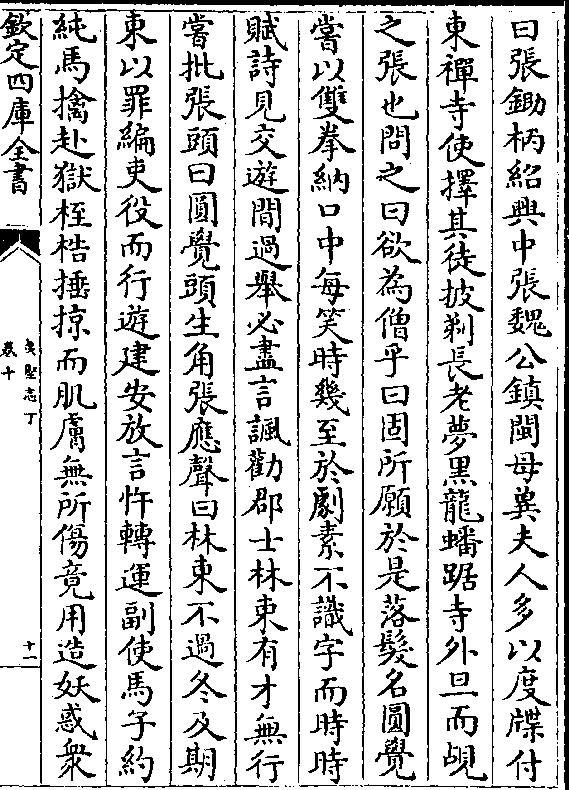 曰張鋤柄紹興中張魏公鎮閩母莫夫人多以度牒付
東禪寺使擇其徒披剃長老夢黑龍蟠踞寺外旦而覘
之張也問之曰欲為僧乎曰固所願於是落髮名圓覺
嘗以雙拳納口中每笑時幾至於劇素不識字而時時
賦詩見交遊間過舉必盡言諷勸郡士林東有才無行
嘗批張頭曰圓覺頭生角張應聲曰林東不過冬及期
東以罪編吏役而行遊建安放言忤轉運副使馬子約
純馬擒赴獄桎梏捶掠而肌膚無所傷竟用造妖惑衆
欽定四庫全書
夷堅志丁
卷十
十二